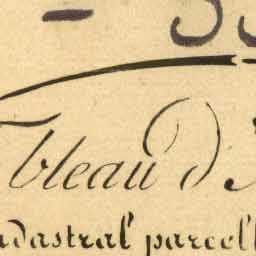 Tableau d'
cadastral parcell